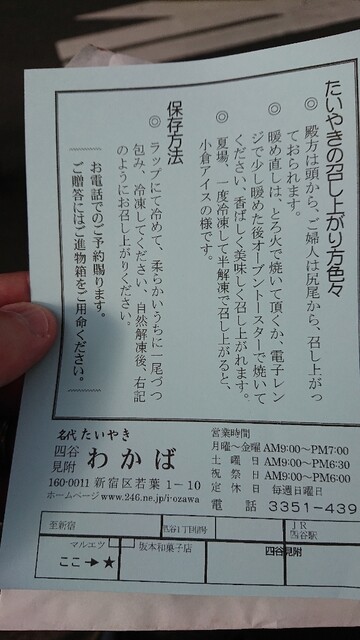 たいやきの召し上がり方色々
◎ 殿方は頭から、ご婦人は尻尾から、召し上がっ
ておられます。
◎ 暖め直しは、とろ火で焼いて頂くか、電子レン
ジで少し暖めた後オーブントースターで焼いて
ください、香ばしく美味しく召し上がれます。
◎ 夏場、一度冷凍して半解凍で召し上がると、
小倉アイスの様です。
保存方法
◎ ラップにて冷めて、柔らかいうちに一尾づつ
包み、冷凍してください、自然解凍後、右記
のようにお召し上がりください。
お電話でのご予約賜ります。
ご贈答にはご進物箱をご用命ください。
名代 たいやき
四谷見附 わかば
160-0011 新宿区若葉1-10
ホームページ www.246.ne.jp/i-ozawa
営業時間
月曜〜金曜 AM9:00〜PM7:00
土曜日 AM9:00〜PM6:30
祝祭日 AM9:00〜PM6:00
定休日 毎週日曜日
電話 3351-439
至新宿
四谷1丁目
JR
四谷駅
マルエツ
坂本和菓子店
四谷見附
ここ→★